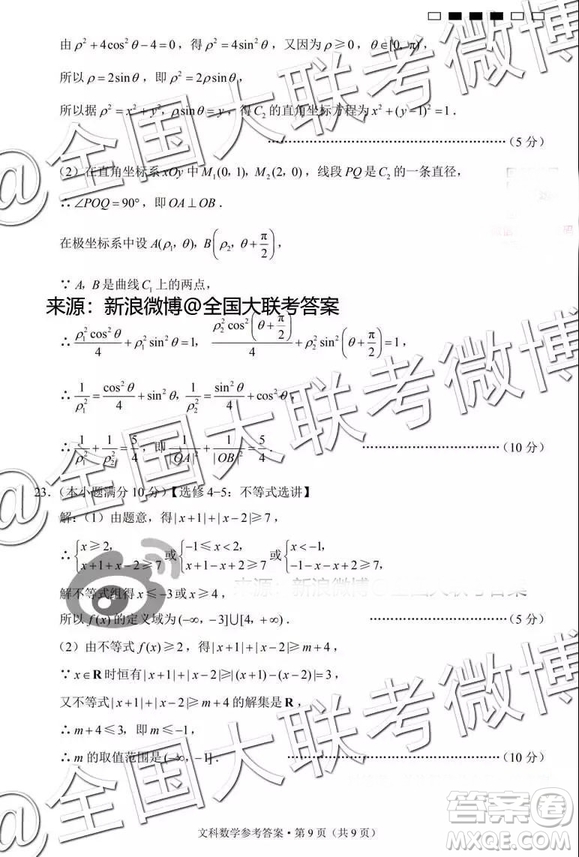 由 ρ²+4cos²θ−4=0，得 ρ²=4sin²θ，又因为 ρ≥0，θ∈[0, π)，
所以 ρ=2sinθ，即 ρ²=2ρsinθ，
所以据 ρ²=x²+y²，ρsinθ=y，得 C₂ 的直角坐标方程为 x²+(y−1)²=1．
（5 分）
（2）在直角坐标系 xOy 中 M₁(0, 1)，M₂(2, 0)，线段 PQ 是 C₂ 的一条直径，
∴∠POQ=90°，即 OA⊥OB．
在极坐标系中设 A(ρ₁, θ)，B(ρ₂, θ+π/2)，
∵A，B 是曲线 C₁ 上的两点，
来源：新浪微博@全国大联考答案
∴ρ₁²cos²θ/4+ρ₁²sin²θ=1，ρ₂²cos²(θ+π/2)/4+ρ₂²sin²(θ+π/2)=1，
∴1/ρ₁²=cos²θ/4+sin²θ，1/ρ₂²=sin²θ/4+cos²θ，
∴1/ρ₁²+1/ρ₂²=5/4，即 1/|OA|²+1/|OB|²=5/4．
（10 分）
23．（本小题满分 10 分）【选修 4−5：不等式选讲】
解：（1）由题意，得 |x+1|+|x−2|≥7，
∴{x≥2, x+1+x−2≥7 或{−1≤x<2, x+1+2−x≥7 或{x<−1, −1−x−x+2≥7,
来源：新浪微博@全国大联考答案
解不等式组得 x≤−3 或 x≥4，
所以 f(x) 的定义域为 (−∞, −3]∪[4, +∞)．
（5 分）
（2）由不等式 f(x)≥2，得 |x+1|+|x−2|≥m+4，
∵x∈R 时恒有 |x+1|+|x−2|≥|(x+1)−(x−2)|=3，
又不等式 |x+1|+|x−2|≥m+4 的解集是 R，
∴m+4≤3，即 m≤−1，
∴m 的取值范围是 (−∞, −1]．
（10 分）
文科数学参考答案・第 9 页（共 9 页）
@全国大联考微博
@全国大联考微博
@全国大联考微博
答案圈
MXQE.COM